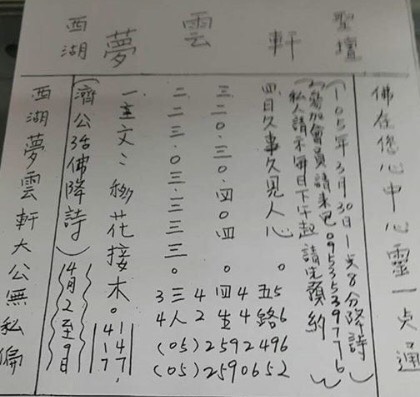 聖壇
軒
雲
夢
西湖
佛在您心中心靈一点通
(105年3月30日
降詩)
參加會員請來電0953539776
私人請求每日下午起請先預約
四日久事久見人心。
三二0.三0.四0.四
二二三.0.三.三三三。
一.主文:移花接木。
(濟公活佛降詩)
4月2至9日
西湖夢雲軒大公無私偏
3三4四4五5
4人2生4路6
(05)2592496
(05)2590652
414
717